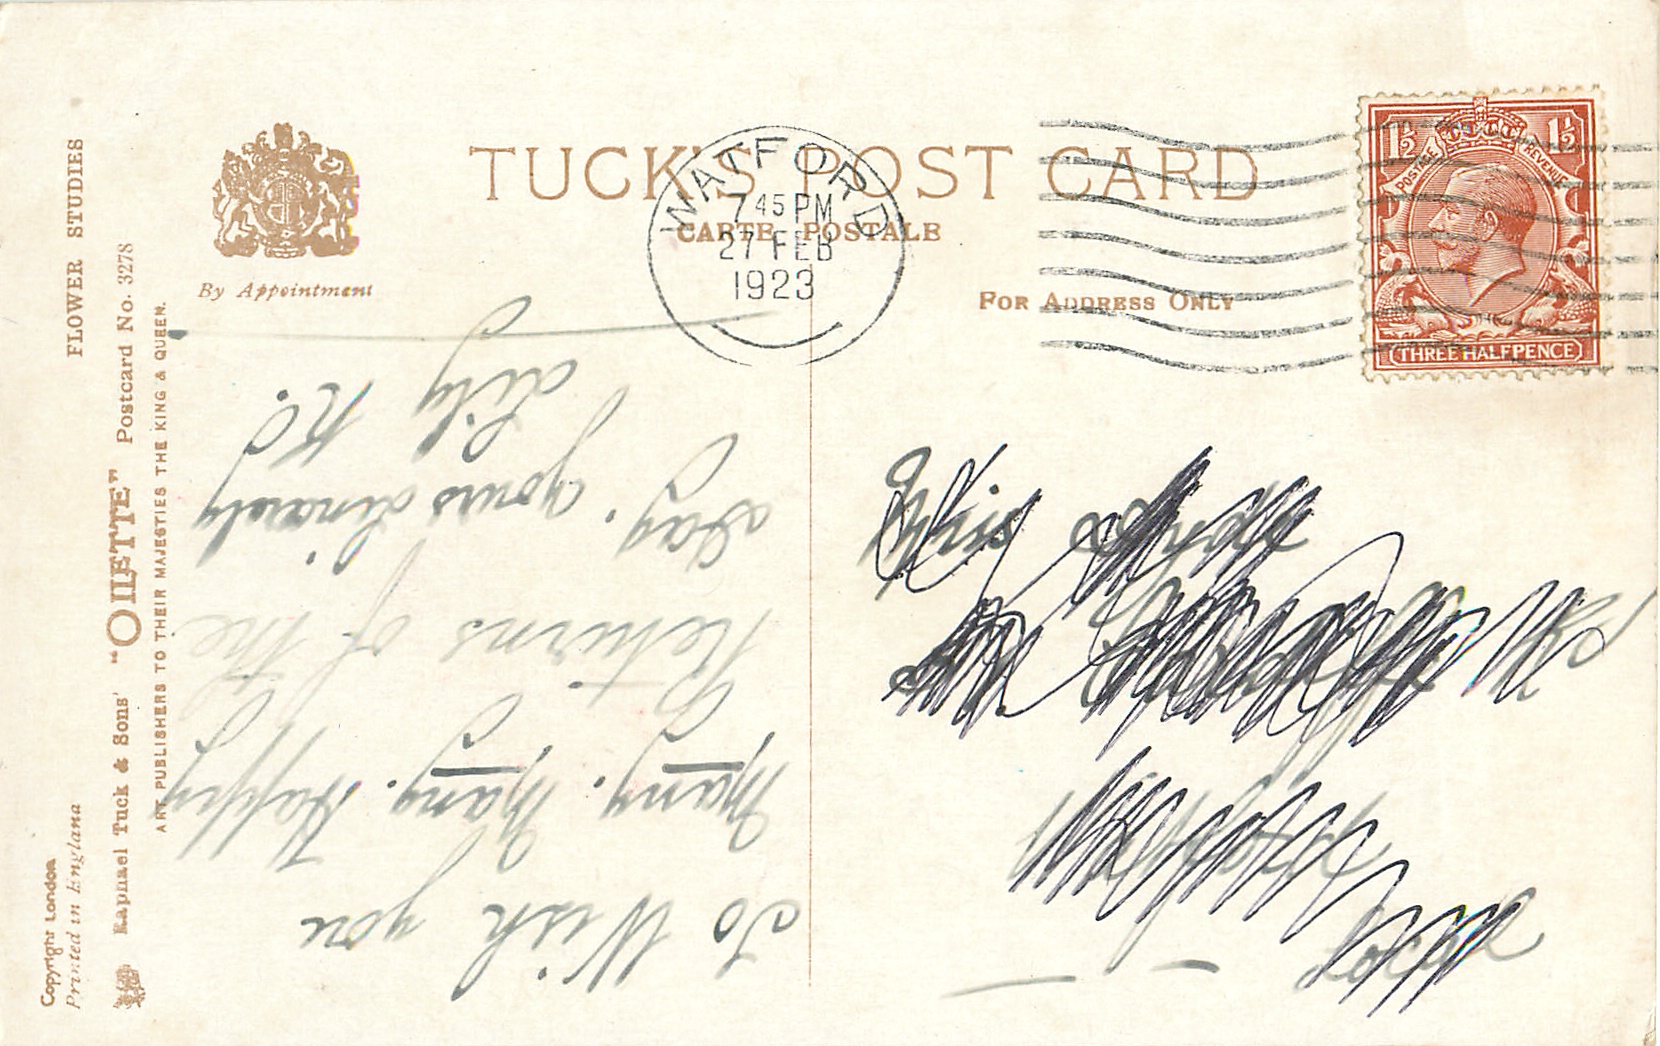 TUCK'S POST CARD
CARTE POSTALE
WATFORD
7 45 PM
27 FEB
1923
POSTAGE REVENUE
1½ 1½
THREE HALFPENCE
By Appointment
FOR ADDRESS ONLY
FLOWER STUDIES
"OILETTE" Postcard No. 3278
Raphael Tuck & Sons'
ART PUBLISHERS TO THEIR MAJESTIES THE KING & QUEEN.
Copyright London
Printed in England
To Wish you
Many. Many. Happy
Returns of the
Day. yours sincerely
Lily K.
Miss
Watford
Local